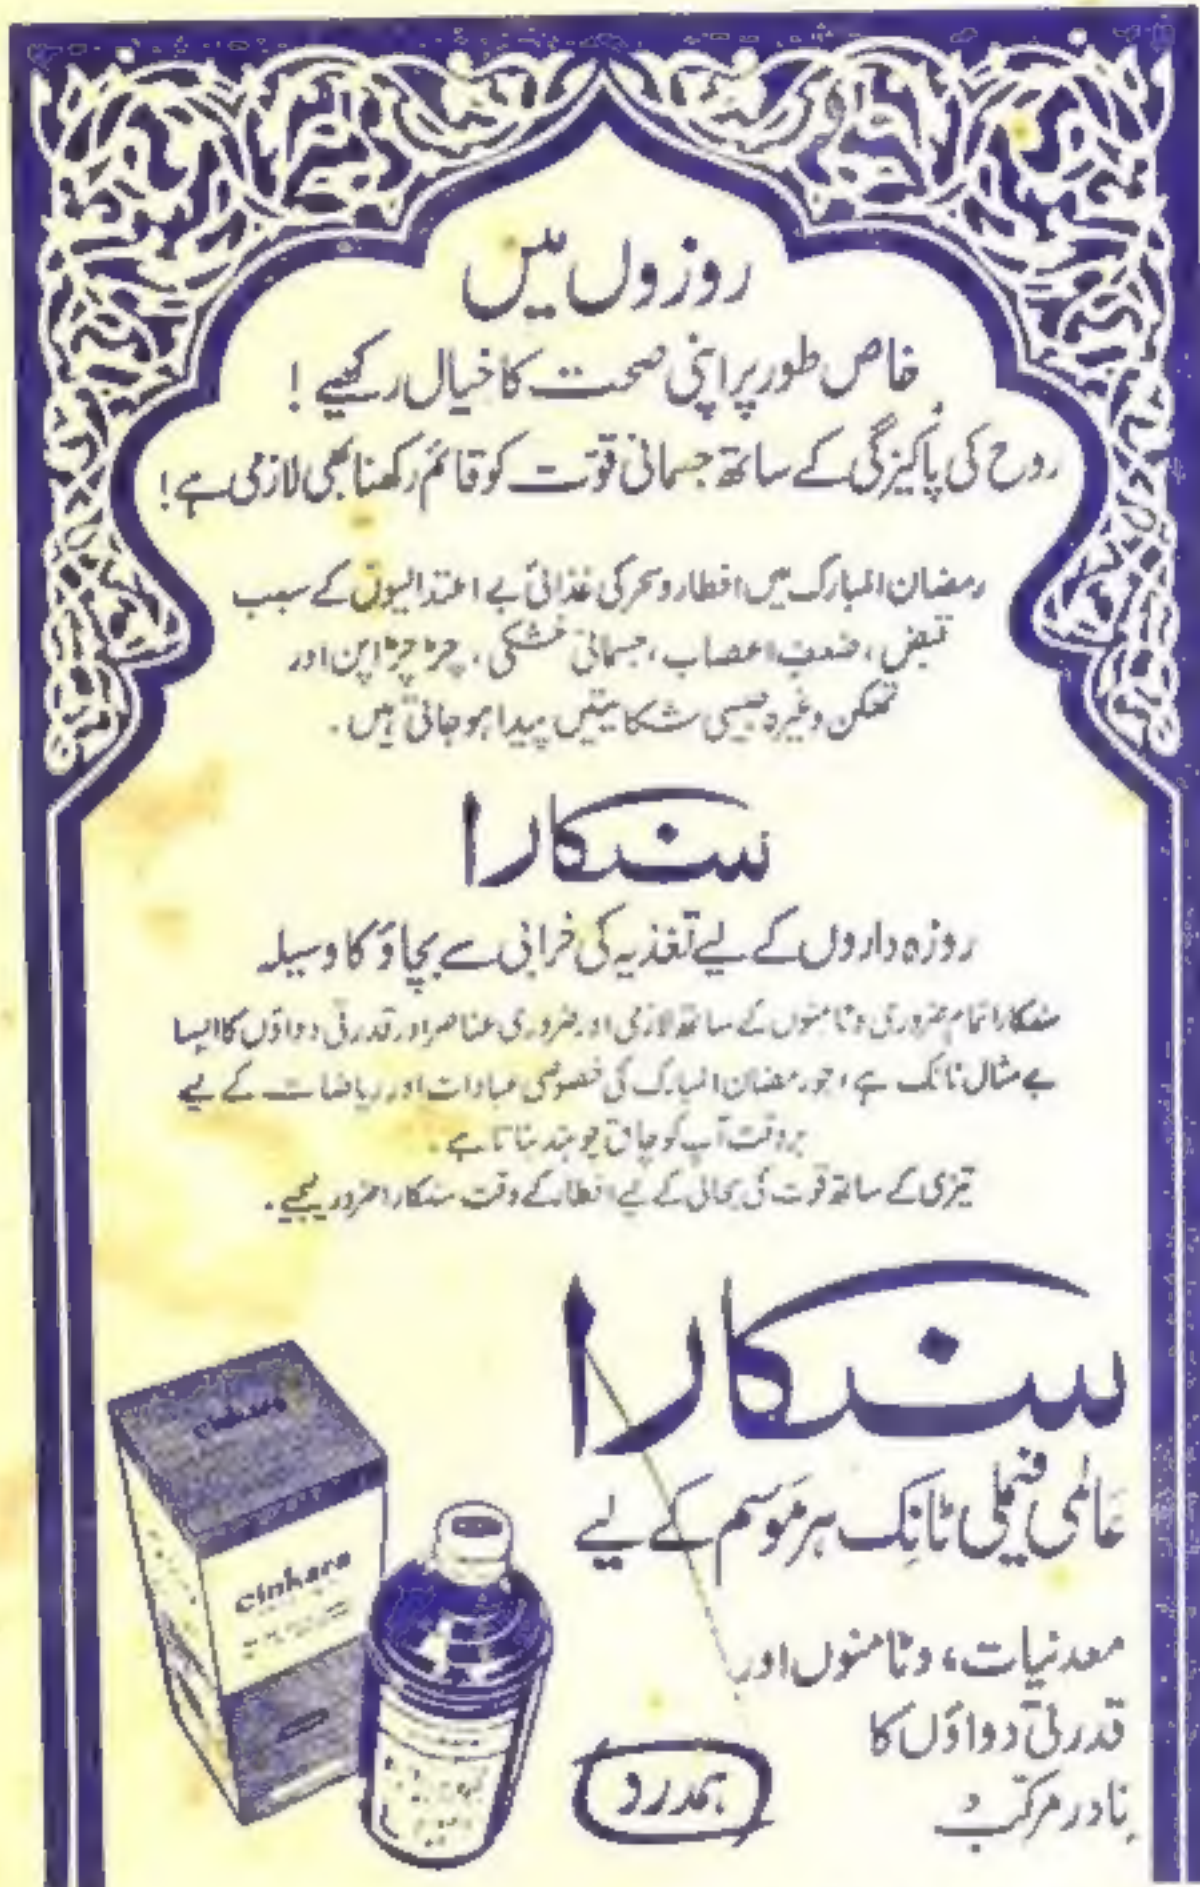 روزوں میں
خاص طور پر اپنی صحت کا خیال رکھیے !
روح کی پاکیزگی کے ساتھ جسمانی قوّت کو قائم رکھنا بھی لازمی ہے !
رمضان المبارک میں افطار و سحر کی غذائی بے اعتدالیوں کے سبب
قبض ، ضعفِ اعصاب ، جسمانی خشکی ، چڑچڑاپن اور
تھکن وغیرہ جیسی شکایتیں پیدا ہو جاتی ہیں ۔
سنکارا
روزہ داروں کے لیے تغذیہ کی خرابی سے بچاؤ کا وسیلہ
سنکارا تمام ضروری وٹامنوں کے ساتھ لازمی اور ضروری عناصر اور قدرتی دواؤں کا ایسا
بے مثال ٹانک ہے ، جو رمضان المبارک کی خصوصی عبادات اور ریاضات کے لیے
ہر وقت آپ کو چاق چوبند بناتا ہے ۔
تیزی کے ساتھ قوت کی بحالی کے لیے افطار کے وقت سنکارا ضرور لیجیے ۔
سنکارا
عالمی فیملی ٹانِک ہر موسم کے لیے
معدنیات ، وٹامنوں اور
قدرتی دواؤں کا
نادر مرکّب
ہمدرد
cinkara
cinkara